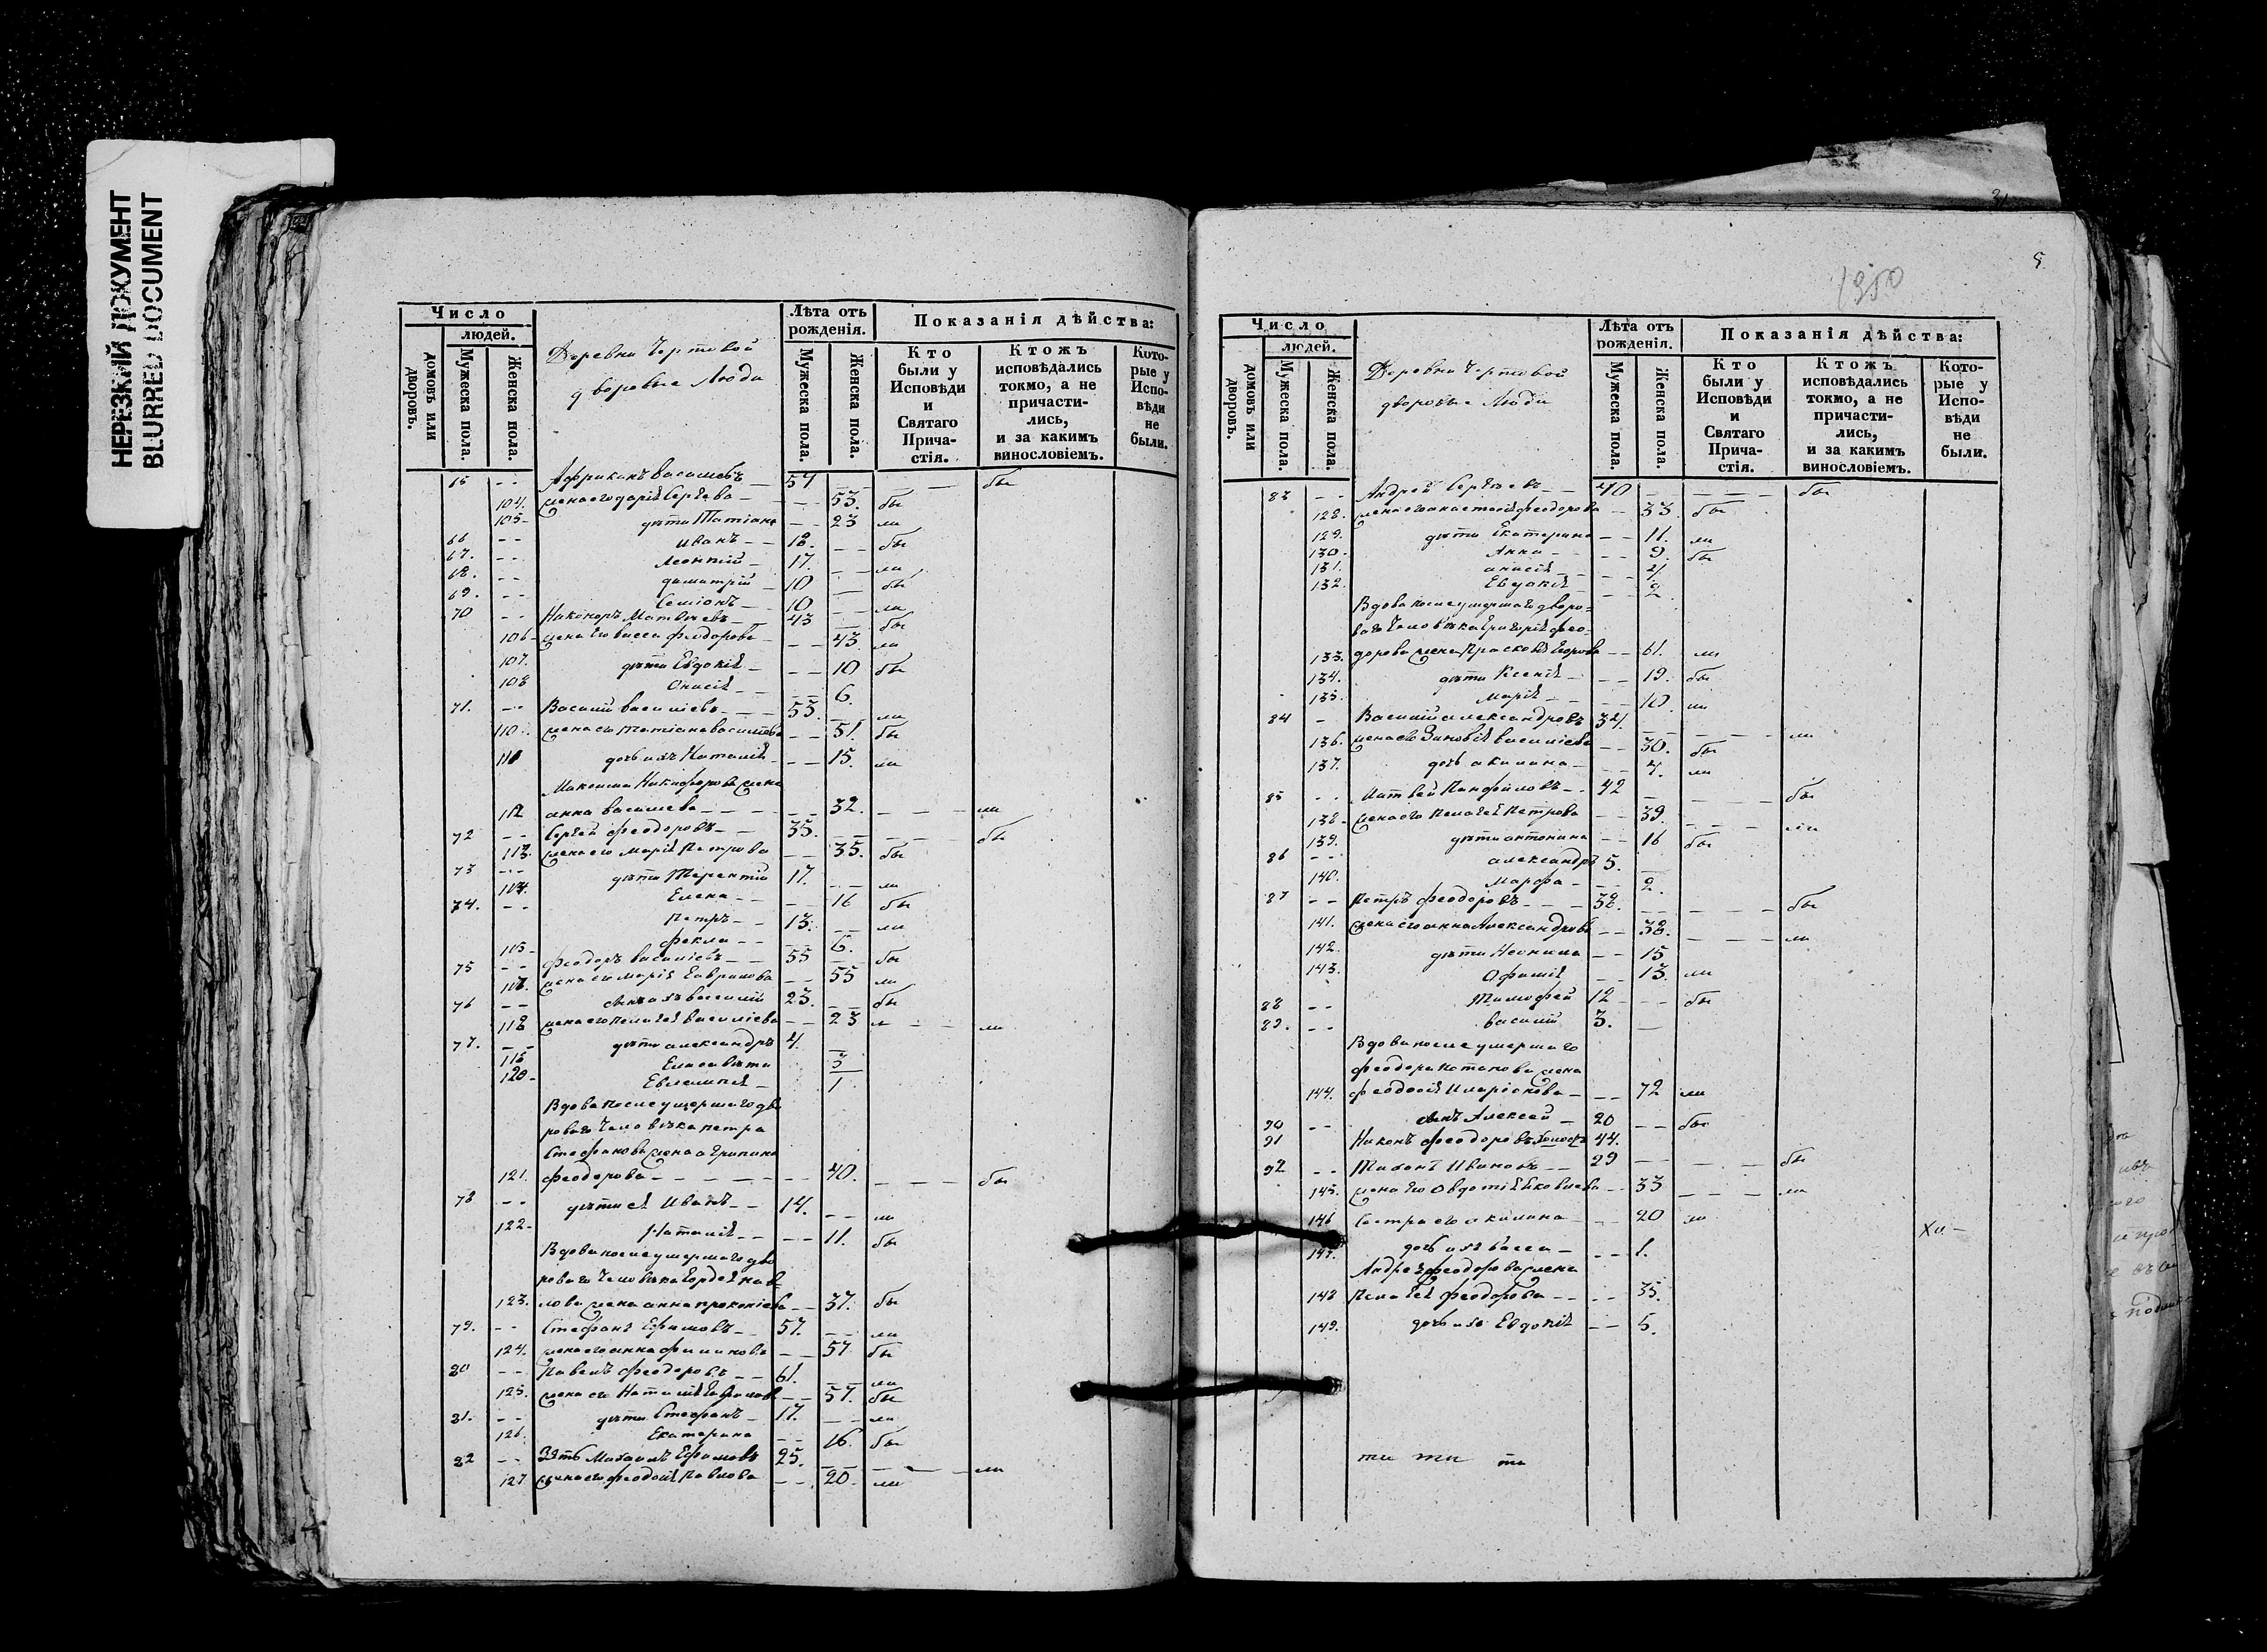 НЕРЕЗКИЙ ДОКУМЕНТ
BLURRED DOCUMENT
Число
людей.
домовъ или дворовъ.
Мужеска пола.
Женска пола.
Деревни Чертовой
дворовые Люди
Лѣта отъ рожденія.
Мужеска пола.
Женска пола.
Показанія дѣйства:
Кто были у Исповѣди и Святаго Прича- стія.
Ктожъ исповѣдались токмо, а не причасти- лись, и за какимъ винословіемъ.
Кото- рые у Испо- вѣди не были.
65 -- Африканъ Василіевъ 54 бы
104. жена его Дарія Сергѣева 53. бы
105 дѣти Татіана 23 ли
66 -- Иванъ 18. бы
67. -- Леонтій 17. ли
68. -- Димитрій 10 бы
69. -- Семіонъ 10 ли
70 -- Никоноръ Матвѣевъ 43 бы
106 жена его Васса Феодорова 43 ли
107. дѣти Евдокія 10 бы
108 Онисія 6.
71. -- Василій Василіевъ 53. ли
110 жена его Татіана Василіева 51. бы
111 дочь ихъ Наталія 15. ли
Максима Никифорова жена
112 Анна Василіева 32. ли
72 -- Сергѣй Феодоровъ 35. бы
113. жена его Марія Петрова 35. бы
73 -- дѣти Терентій 17. ли
114. Елена 16 бы
74. -- Петръ 13. ли
115 Фекла 6.
75 -- Феодоръ Василіевъ 55 бы
116. жена его Марія Гаврилова 55 ли
76 -- сынъ ихъ Василій 23. бы
118 жена его Пелагея Василіева 23 ли
77. -- дѣти Александръ 4.
Елисавета 3
120 Евлампія 1
Вдова после умершаго дво
роваго Человѣка Петра
Стефанова жена Агрипина
121. Феодорова 40. бы
78 -- дѣти ея Иванъ 14. ли
122 Наталія 11. бы
Вдова после умершаго дво
роваго Человѣка Гордѣя Пав
123. лова жена Анна Прокопіева 37. бы
79. -- Стефанъ Ефимовъ 57. ли
124. жена его Анна Филипова 57 бы
80 -- Павелъ Феодоровъ 61. ли
125. жена его Наталія 57. бы
81. -- дѣти Стефанъ 17. ли
126. Екатерина 16. бы
82 -- Зять Михаилъ Ефимовъ 25. ли
127 жена его Феодосія Павлова 20 ли
5
1350
Число
людей.
домовъ или дворовъ.
Мужеска пола.
Женска пола.
Деревни Чертовой
дворовые Люди
Лѣта отъ рожденія.
Мужеска пола.
Женска пола.
Показанія дѣйства:
Кто были у Исповѣди и Святаго Прича- стія.
Ктожъ исповѣдались токмо, а не причасти- лись, и за какимъ винословіемъ.
Кото- рые у Испо- вѣди не были.
83 -- Андрей Сергѣевъ 40 бы
128. жена его Анастасія Феодорова 33. бы
129. дѣти Екатерина 11. ли
130. Анна 9. бы
131. Анисія 4.
132. Евдокія 2
Вдова после умершаго дворо=
ваго Человѣка Григорія Фео=
133. дорова жена Прасковія Егорова 61. ли
134. дѣти Ксенія 19. бы
135. Марія 10. ли
84 - Василій Александровъ 34. ли
136. жена его Зиновія Василіева 30. бы
137. дочь Акилина 7. ли
85 -- Матвей Панфиловъ 42 бы
138 жена его Пелагея Петрова 39. ли
139. дѣти Антонина 16 бы
86 -- Александръ 5.
140. Марфа 2.
87 -- Петръ Феодоровъ 38. бы
141. жена его Анна Александрова 38. ли
142. дѣти Неонила 15
143. Офимія 13. ли
88 -- Тимофей 12 бы
89. -- Василій 3.
Вдова после умершаго
Феодора Потапова жена
144. Феодосія Иларіонова 72 ли
90 -- сынъ Алексей 20 бы
91 Никонъ Феодоровъ 44.
92 -- Тихонъ Ивановъ 29 бы
145. жена его Овдотія Яковлева 33 ли
146 Сестра его Акилина 20 ли
147. дочь ихъ Васса 1.
Андрея Феодорова жена
148 Пелагея Феодорова 35.
149. дочь ихъ Евдокія 5.
ти ти ти